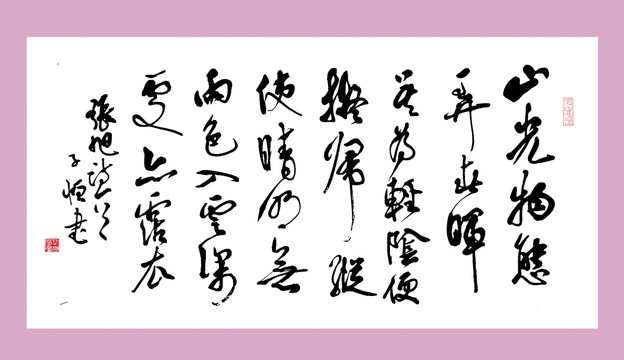 山光物態
弄春暉
莫為輕陰便
擬歸縱
使晴明無
雨色入雲深
處亦霑衣
張旭詩
子恒書